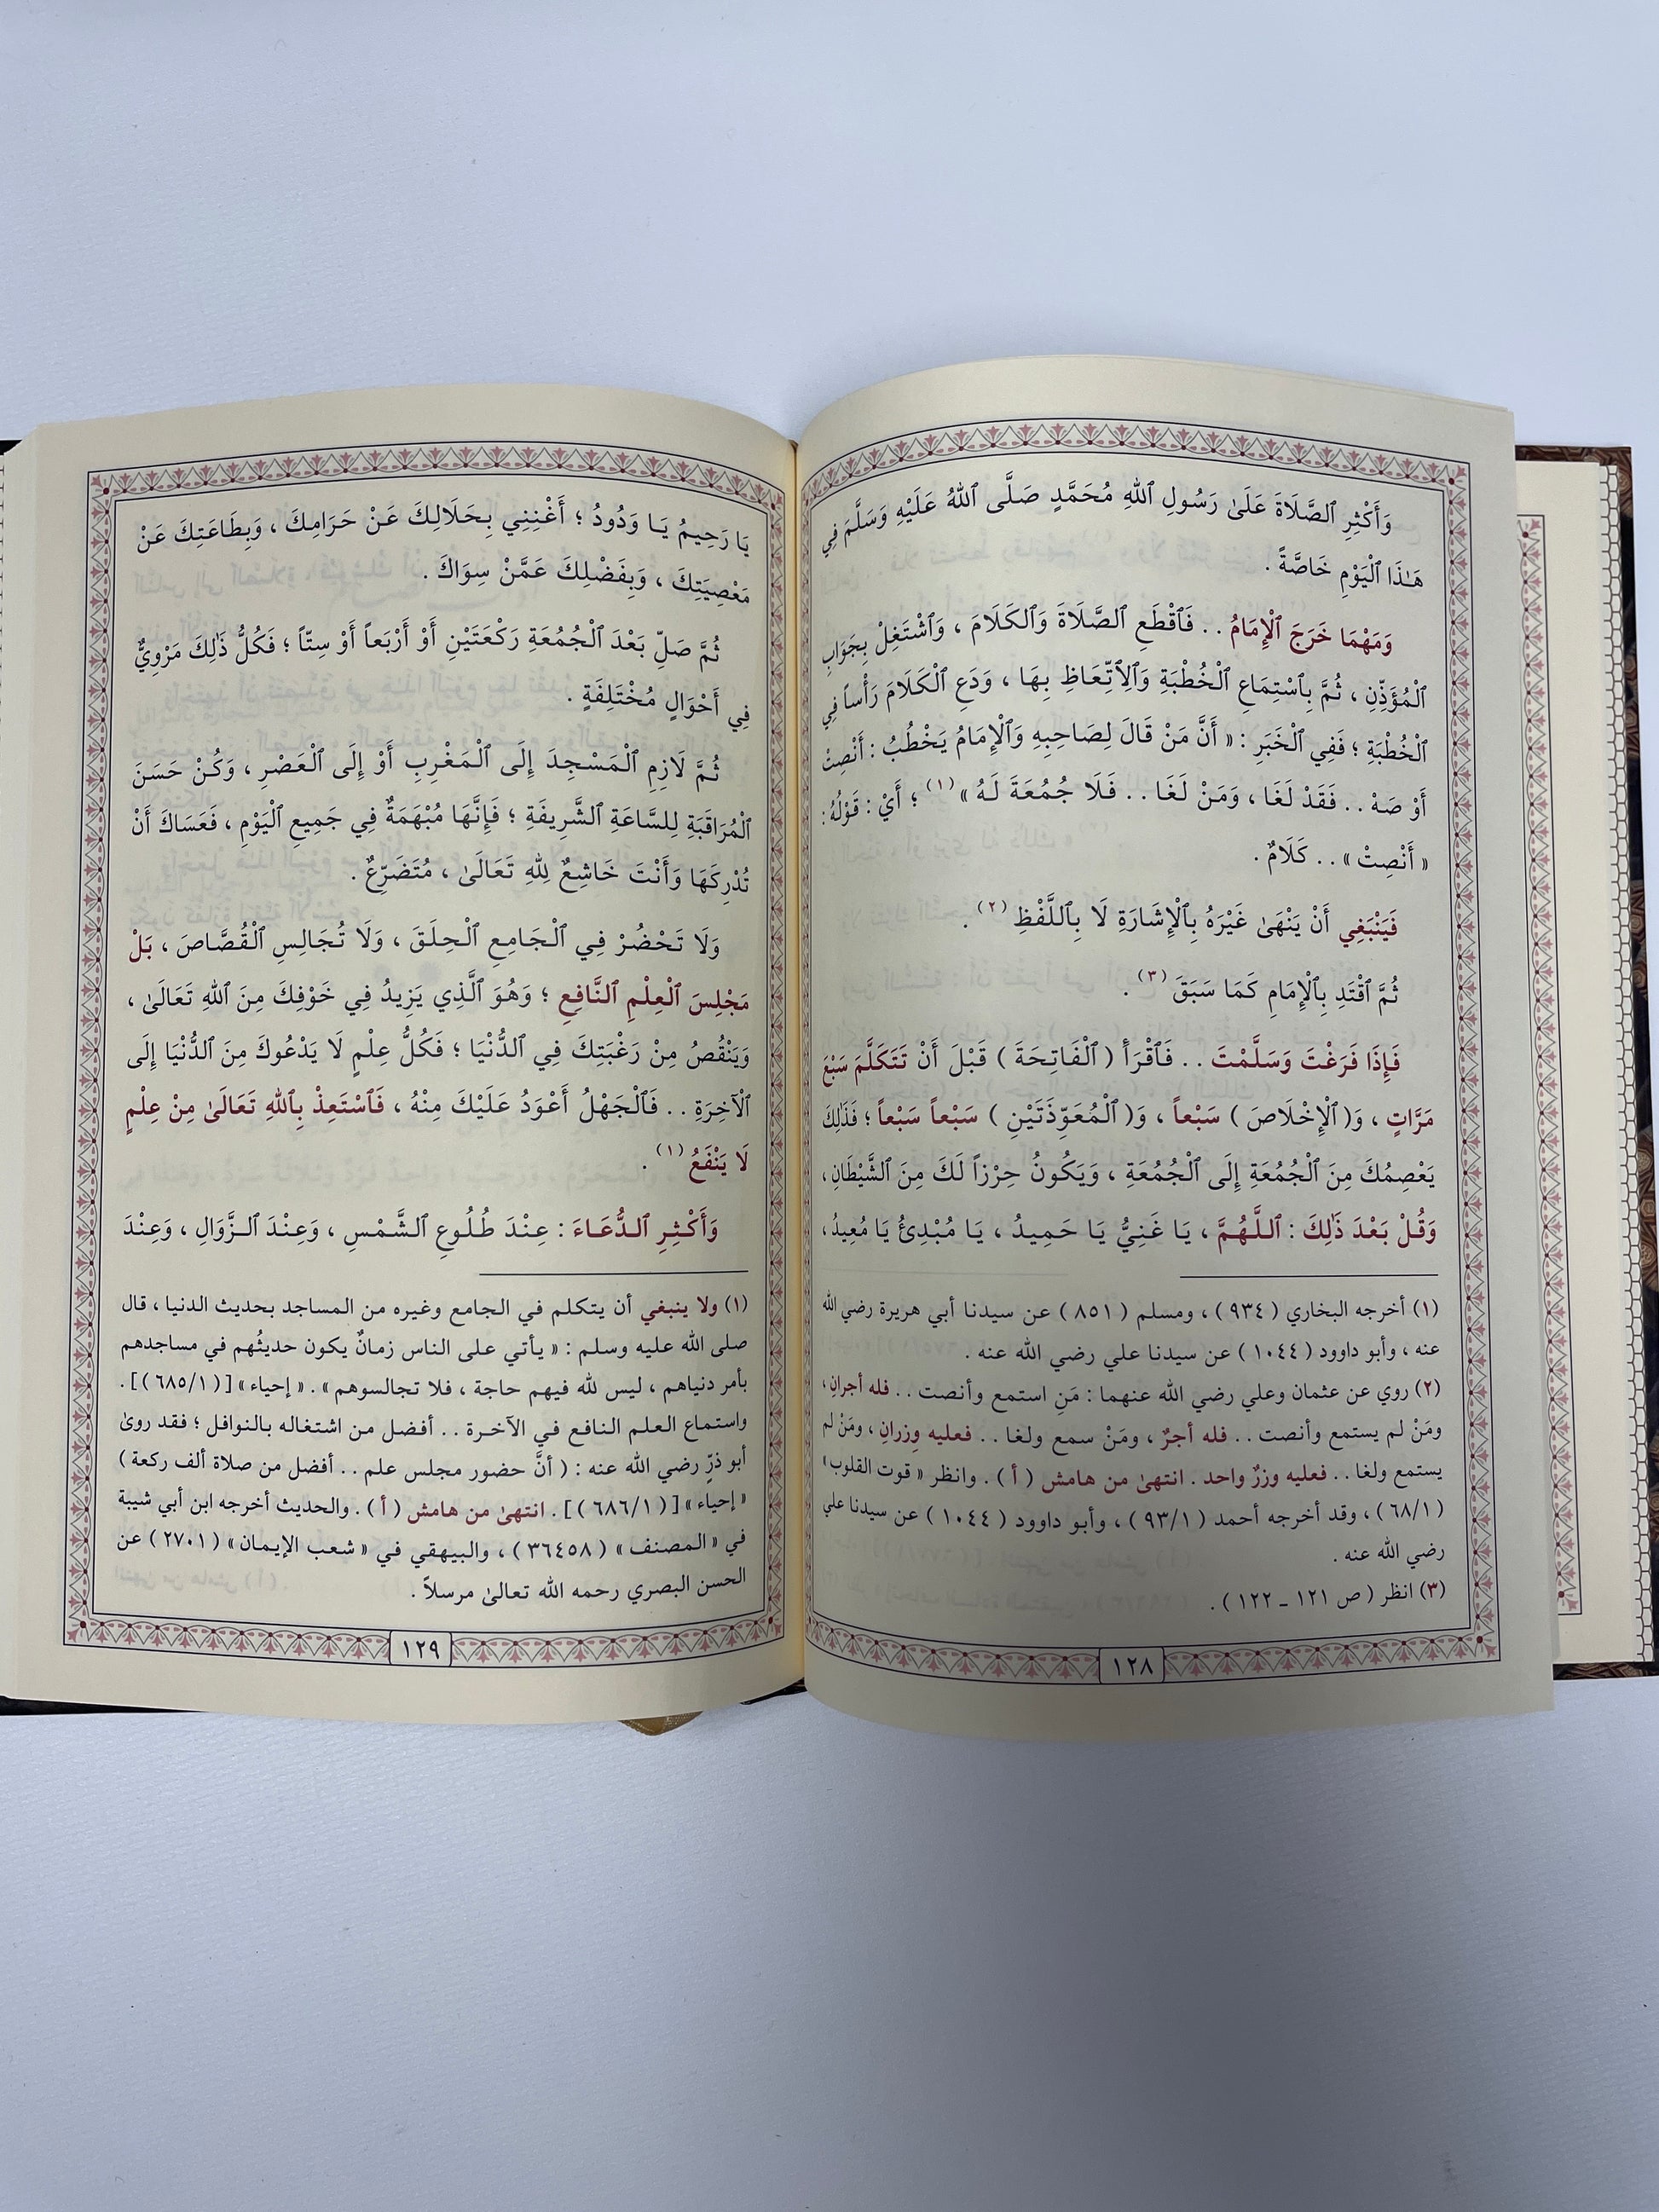 وَأَكْثِرِ ٱلصَّلَاةَ عَلَىٰ رَسُولِ ٱللهِ مُحَمَّدٍ صَلَّى ٱللهُ عَلَيْهِ وَسَلَّمَ فِي
هَـٰذَا ٱلْيَوْمِ خَاصَّةً .
وَمَهْمَا خَرَجَ ٱلْإِمَامُ . . فَٱقْطَعِ ٱلصَّلَاةَ وَٱلْكَلَامَ ، وَٱشْتَغِلْ بِجَوَابِ
ٱلْمُؤَذِّنِ ، ثُمَّ بِٱسْتِمَاعِ ٱلْخُطْبَةِ وَٱلِٱتِّعَاظِ بِهَا ، وَدَعِ ٱلْكَلَامَ رَأْساً فِي
ٱلْخُطْبَةِ ؛ فَفِي ٱلْخَبَرِ : « أَنَّ مَنْ قَالَ لِصَاحِبِهِ وَٱلْإِمَامُ يَخْطُبُ : أَنْصِتْ
أَوْ صَهْ . . فَقَدْ لَغَا ، وَمَنْ لَغَا . . فَلَا جُمُعَةَ لَهُ »(١) ؛ أَيْ : قَوْلُهُ :
« أَنْصِتْ » . . كَلَامٌ .
فَيَنْبَغِي أَنْ يَنْهَىٰ غَيْرَهُ بِٱلْإِشَارَةِ لَا بِٱللَّفْظِ(٢) .
ثُمَّ ٱقْتَدِ بِٱلْإِمَامِ كَمَا سَبَقَ(٣) .
فَإِذَا فَرَغْتَ وَسَلَّمْتَ . . فَٱقْرَأْ ( ٱلْفَاتِحَةَ ) قَبْلَ أَنْ تَتَكَلَّمَ سَبْعَ
مَرَّاتٍ ، وَ( ٱلْإِخْلَاصَ ) سَبْعاً ، وَ( ٱلْمُعَوِّذَتَيْنِ ) سَبْعاً سَبْعاً ؛ فَذَلِكَ
يَعْصِمُكَ مِنَ ٱلْجُمُعَةِ إِلَى ٱلْجُمُعَةِ ، وَيَكُونُ حِرْزاً لَكَ مِنَ ٱلشَّيْطَانِ ،
وَقُلْ بَعْدَ ذَٰلِكَ : ٱللَّهُمَّ ، يَا غَنِيُّ يَا حَمِيدُ ، يَا مُبْدِئُ يَا مُعِيدُ ،
(١) أخرجه البخاري ( ٩٣٤ ) ، ومسلم ( ٨٥١ ) عن سيدنا أبي هريرة رضي الله
عنه ، وأبو داوود ( ١٠٤٤ ) عن سيدنا علي رضي الله عنه .
(٢) روي عن عثمان وعلي رضي الله عنهما : مَنِ استمع وأنصت . . فله أجرانِ ،
ومَنْ لم يستمع وأنصت . . فله أجرٌ ، ومَنْ سمع ولغا . . فعليه وِزرانِ ، ومَنْ لم
يستمع ولغا . . فعليه وزرٌ واحد . انتهىٰ من هامش ( أ ) . وانظر « قوت القلوب »
( ٦٨/١ ) ، وقد أخرجه أحمد ( ٩٣/١ ) ، وأبو داوود ( ١٠٤٤ ) عن سيدنا علي
رضي الله عنه .
(٣) انظر ( ص ١٢١ ـ ١٢٢ ) .
١٢٨
يَا رَحِيمُ يَا وَدُودُ ؛ أَغْنِنِي بِحَلَالِكَ عَنْ حَرَامِكَ ، وَبِطَاعَتِكَ عَنْ
مَعْصِيَتِكَ ، وَبِفَضْلِكَ عَمَّنْ سِوَاكَ .
ثُمَّ صَلِّ بَعْدَ ٱلْجُمُعَةِ رَكْعَتَيْنِ أَوْ أَرْبَعاً أَوْ سِتّاً ؛ فَكُلُّ ذَٰلِكَ مَرْوِيٌّ
فِي أَحْوَالٍ مُخْتَلِفَةٍ .
ثُمَّ لَازِمِ ٱلْمَسْجِدَ إِلَى ٱلْمَغْرِبِ أَوْ إِلَى ٱلْعَصْرِ ، وَكُنْ حَسَنَ
ٱلْمُرَاقَبَةِ لِلسَّاعَةِ ٱلشَّرِيفَةِ ؛ فَإِنَّهَا مُبْهَمَةٌ فِي جَمِيعِ ٱلْيَوْمِ ، فَعَسَاكَ أَنْ
تُدْرِكَهَا وَأَنْتَ خَاشِعٌ لِلهِ تَعَالَىٰ ، مُتَضَرِّعٌ .
وَلَا تَحْضُرْ فِي ٱلْجَامِعِ ٱلْحِلَقَ ، وَلَا تُجَالِسِ ٱلْقُصَّاصَ ، بَلْ
مَجْلِسَ ٱلْعِلْمِ ٱلنَّافِعِ ؛ وَهُوَ ٱلَّذِي يَزِيدُ فِي خَوْفِكَ مِنَ ٱللهِ تَعَالَىٰ ،
وَيَنْقُصُ مِنْ رَغْبَتِكَ فِي ٱلدُّنْيَا ؛ فَكُلُّ عِلْمٍ لَا يَدْعُوكَ مِنَ ٱلدُّنْيَا إِلَى
ٱلْآخِرَةِ . . فَٱلْجَهْلُ أَعْوَدُ عَلَيْكَ مِنْهُ ، فَٱسْتَعِذْ بِٱللهِ تَعَالَىٰ مِنْ عِلْمٍ
لَا يَنْفَعُ(١) .
وَأَكْثِرِ ٱلدُّعَاءَ : عِنْدَ طُلُوعِ ٱلشَّمْسِ ، وَعِنْدَ ٱلزَّوَالِ ، وَعِنْدَ
(١) ولا ينبغي أن يتكلم في الجامع وغيره من المساجد بحديث الدنيا ، قال
صلى الله عليه وسلم : « يأتي على الناس زمانٌ يكون حديثُهم في مساجدهم
بأمر دنياهم ، ليس لله فيهم حاجة ، فلا تجالسوهم » . « إحياء » [( ٦٨٥/١ )] .
واستماع العلم النافع في الآخرة . . أفضل من اشتغاله بالنوافل ؛ فقد روىٰ
أبو ذرٍّ رضي الله عنه : ( أنَّ حضور مجلس علم . . أفضل من صلاة ألف ركعة )
« إحياء » [( ٦٨٦/١ )] . انتهىٰ من هامش ( أ ) . والحديث أخرجه ابن أبي شيبة
في « المصنف » ( ٣٦٤٥٨ ) ، والبيهقي في « شعب الإيمان » ( ٢٧٠١ ) عن
الحسن البصري رحمه الله تعالىٰ مرسلاً .
١٢٩